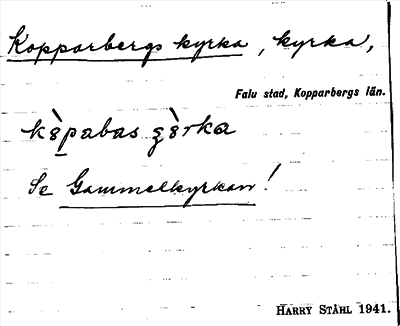 Kopparbergs kyrka, kyrka,
Falu stad, Kopparbergs län.
Se Gammelkyrkan!
HARRY STÅHL 1941.